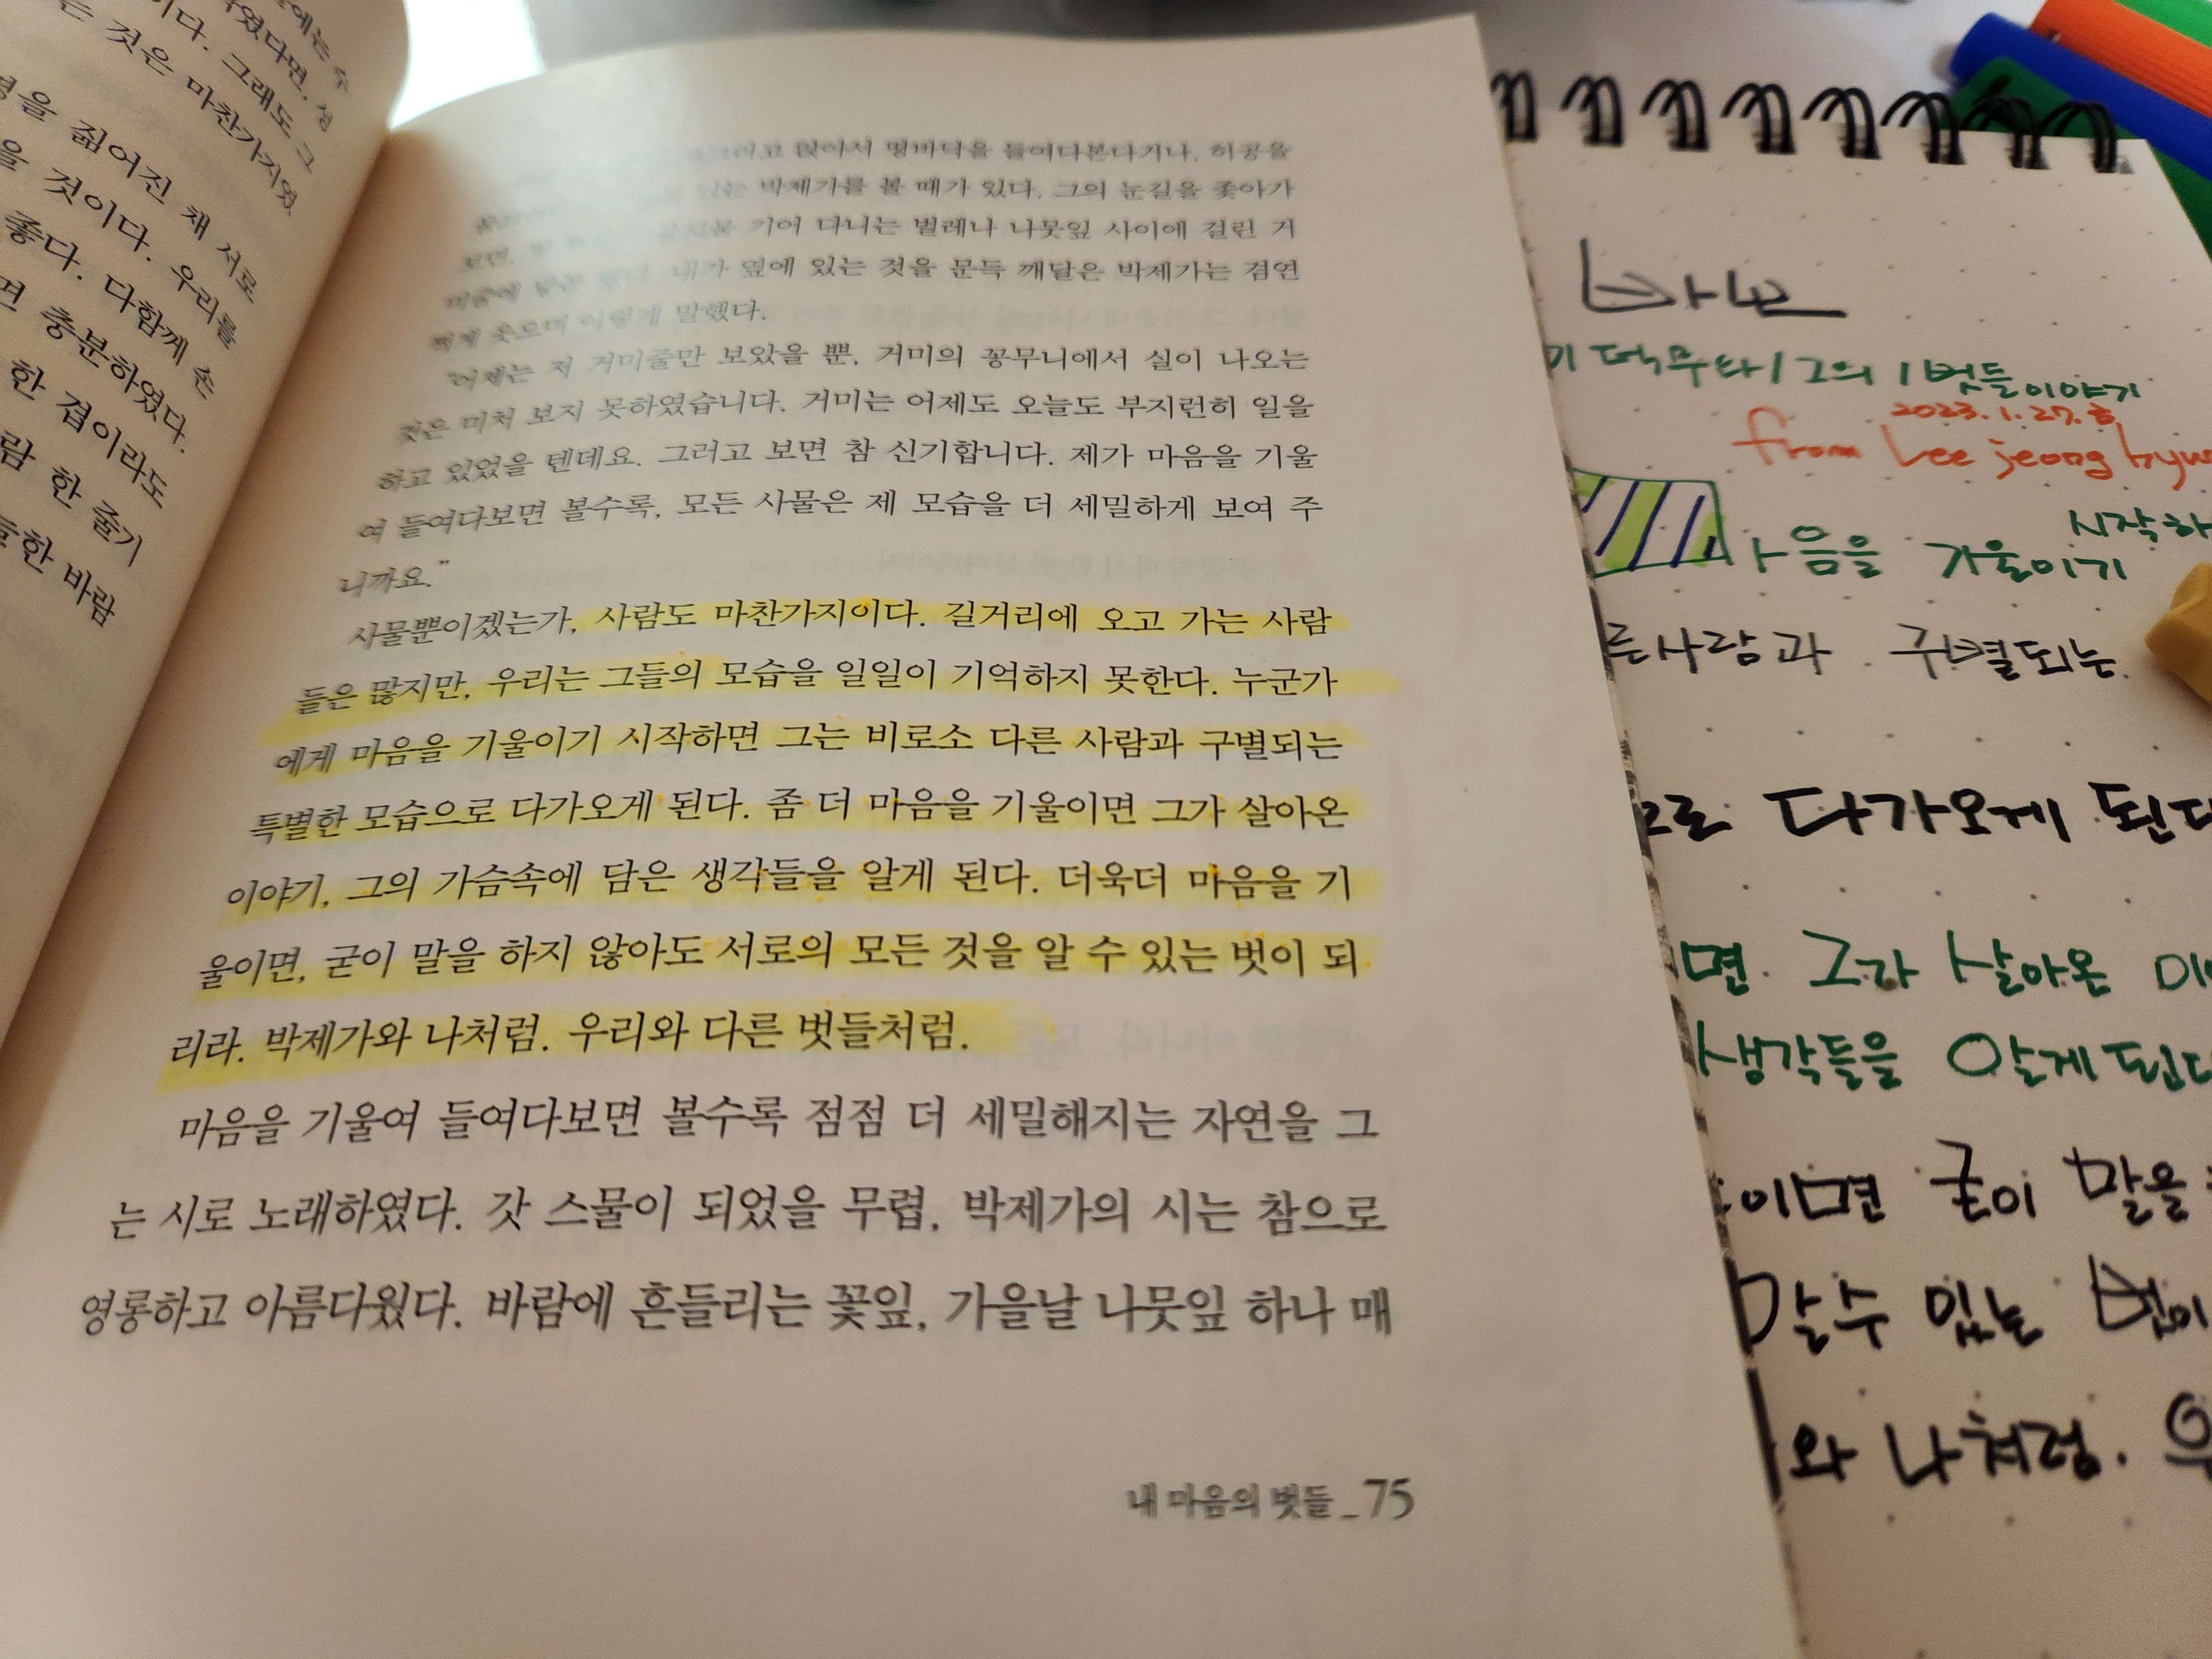 것은 마찬가지였
을 짊어진 채 서로
을 것이다. 우리를
좋다. 다함께 손
면 충분하였다.
한 겹이라도
람 한 줄기
한 바람
앉아서 땅바닥을 들여다본다거나, 허공을
박제가를 볼 때가 있다. 그의 눈길을 좇아가
기어 다니는 벌레나 나뭇잎 사이에 걸린 거
내가 옆에 있는 것을 문득 깨달은 박제가는 겸연
쩍게 웃으며 이렇게 말했다.
"어제는 저 거미줄만 보았을 뿐, 거미의 꽁무니에서 실이 나오는
것은 미처 보지 못하였습니다. 거미는 어제도 오늘도 부지런히 일을
하고 있었을 텐데요. 그러고 보면 참 신기합니다. 제가 마음을 기울
여 들여다보면 볼수록, 모든 사물은 제 모습을 더 세밀하게 보여 주
니까요."
사물뿐이겠는가, 사람도 마찬가지이다. 길거리에 오고 가는 사람
들은 많지만, 우리는 그들의 모습을 일일이 기억하지 못한다. 누군가
에게 마음을 기울이기 시작하면 그는 비로소 다른 사람과 구별되는
특별한 모습으로 다가오게 된다. 좀 더 마음을 기울이면 그가 살아온
이야기, 그의 가슴속에 담은 생각들을 알게 된다. 더욱더 마음을 기
울이면, 굳이 말을 하지 않아도 서로의 모든 것을 알 수 있는 벗이 되
리라. 박제가와 나처럼. 우리와 다른 벗들처럼.
마음을 기울여 들여다보면 볼수록 점점 더 세밀해지는 자연을 그
는 시로 노래하였다. 갓 스물이 되었을 무렵, 박제가의 시는 참으로
영롱하고 아름다웠다. 바람에 흔들리는 꽃잎, 가을날 나뭇잎 하나 매
내 마음의 벗들_75
이덕무와 그의 벗들이야기
2023.1.27.
from Lee jeong hyu
시작하
음을 기울이기
른사람과 구별되는
으로 다가오게 된다
면 그가 살아온
생각들을 알게 된다
이면 굳이 말을
알수 있는 벗이
와 나처럼.